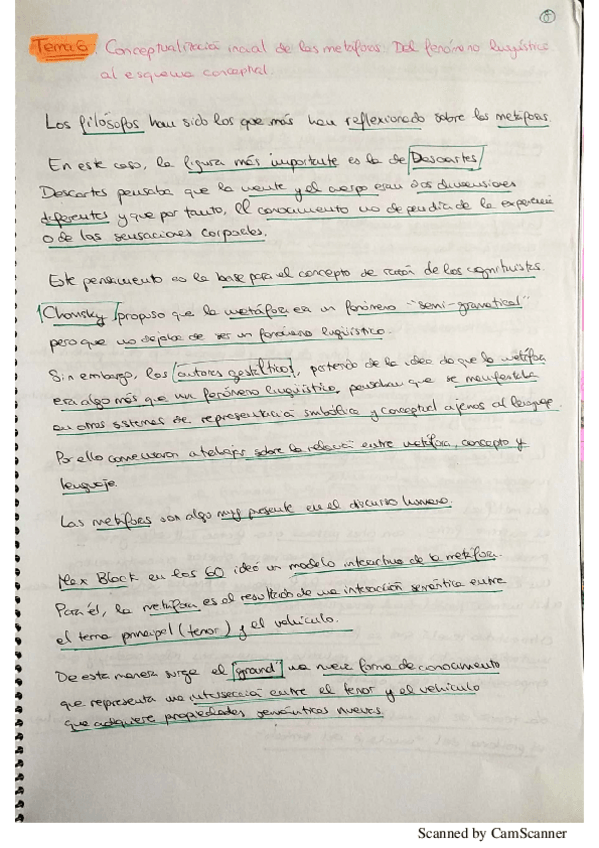 ①
Tema 6. Conceptualización inicial de las metáforas. Del fenómeno lingüístico
al esquema conceptual.
Los filósofos han sido los que más han reflexionado sobre las metáforas.
En este caso, la figura más importante es la de Descartes
Descartes pensaba que la mente y el cuerpo eran dos dimensiones
diferentes y que por tanto, el conocimiento no dependía de la experiencia
o de las sensaciones corporales.
Este pensamiento es la base para el concepto de razón de los cognitivistas.
Chomsky propuso que la metáfora era un fenómeno "semi-gramatical"
pero que no dejaba de ser un fenómeno lingüístico.
Sin embargo, los autores gestálticos, partiendo de la idea de que la metáfora
era algo más que un fenómeno lingüístico, pensaban que se manifestaba
en otros sistemas de representación simbólica y conceptual ajenos al lenguaje.
Por ello comenzaron a trabajar sobre la relación entre metáfora, concepto y
lenguaje.
Las metáforas son algo muy presente en el discurso humano.
Max Black en los 60 ideó un modelo interactivo de la metáfora.
Para él, la metáfora es el resultado de una interacción semántica entre
el tema principal (tenor) y el vehículo.
De esta manera surge el "grand" una nueva forma de conocimiento
que representa una intersección entre el tenor y el vehículo
que adquiere propiedades semánticas nuevas.
Scanned by CamScanner